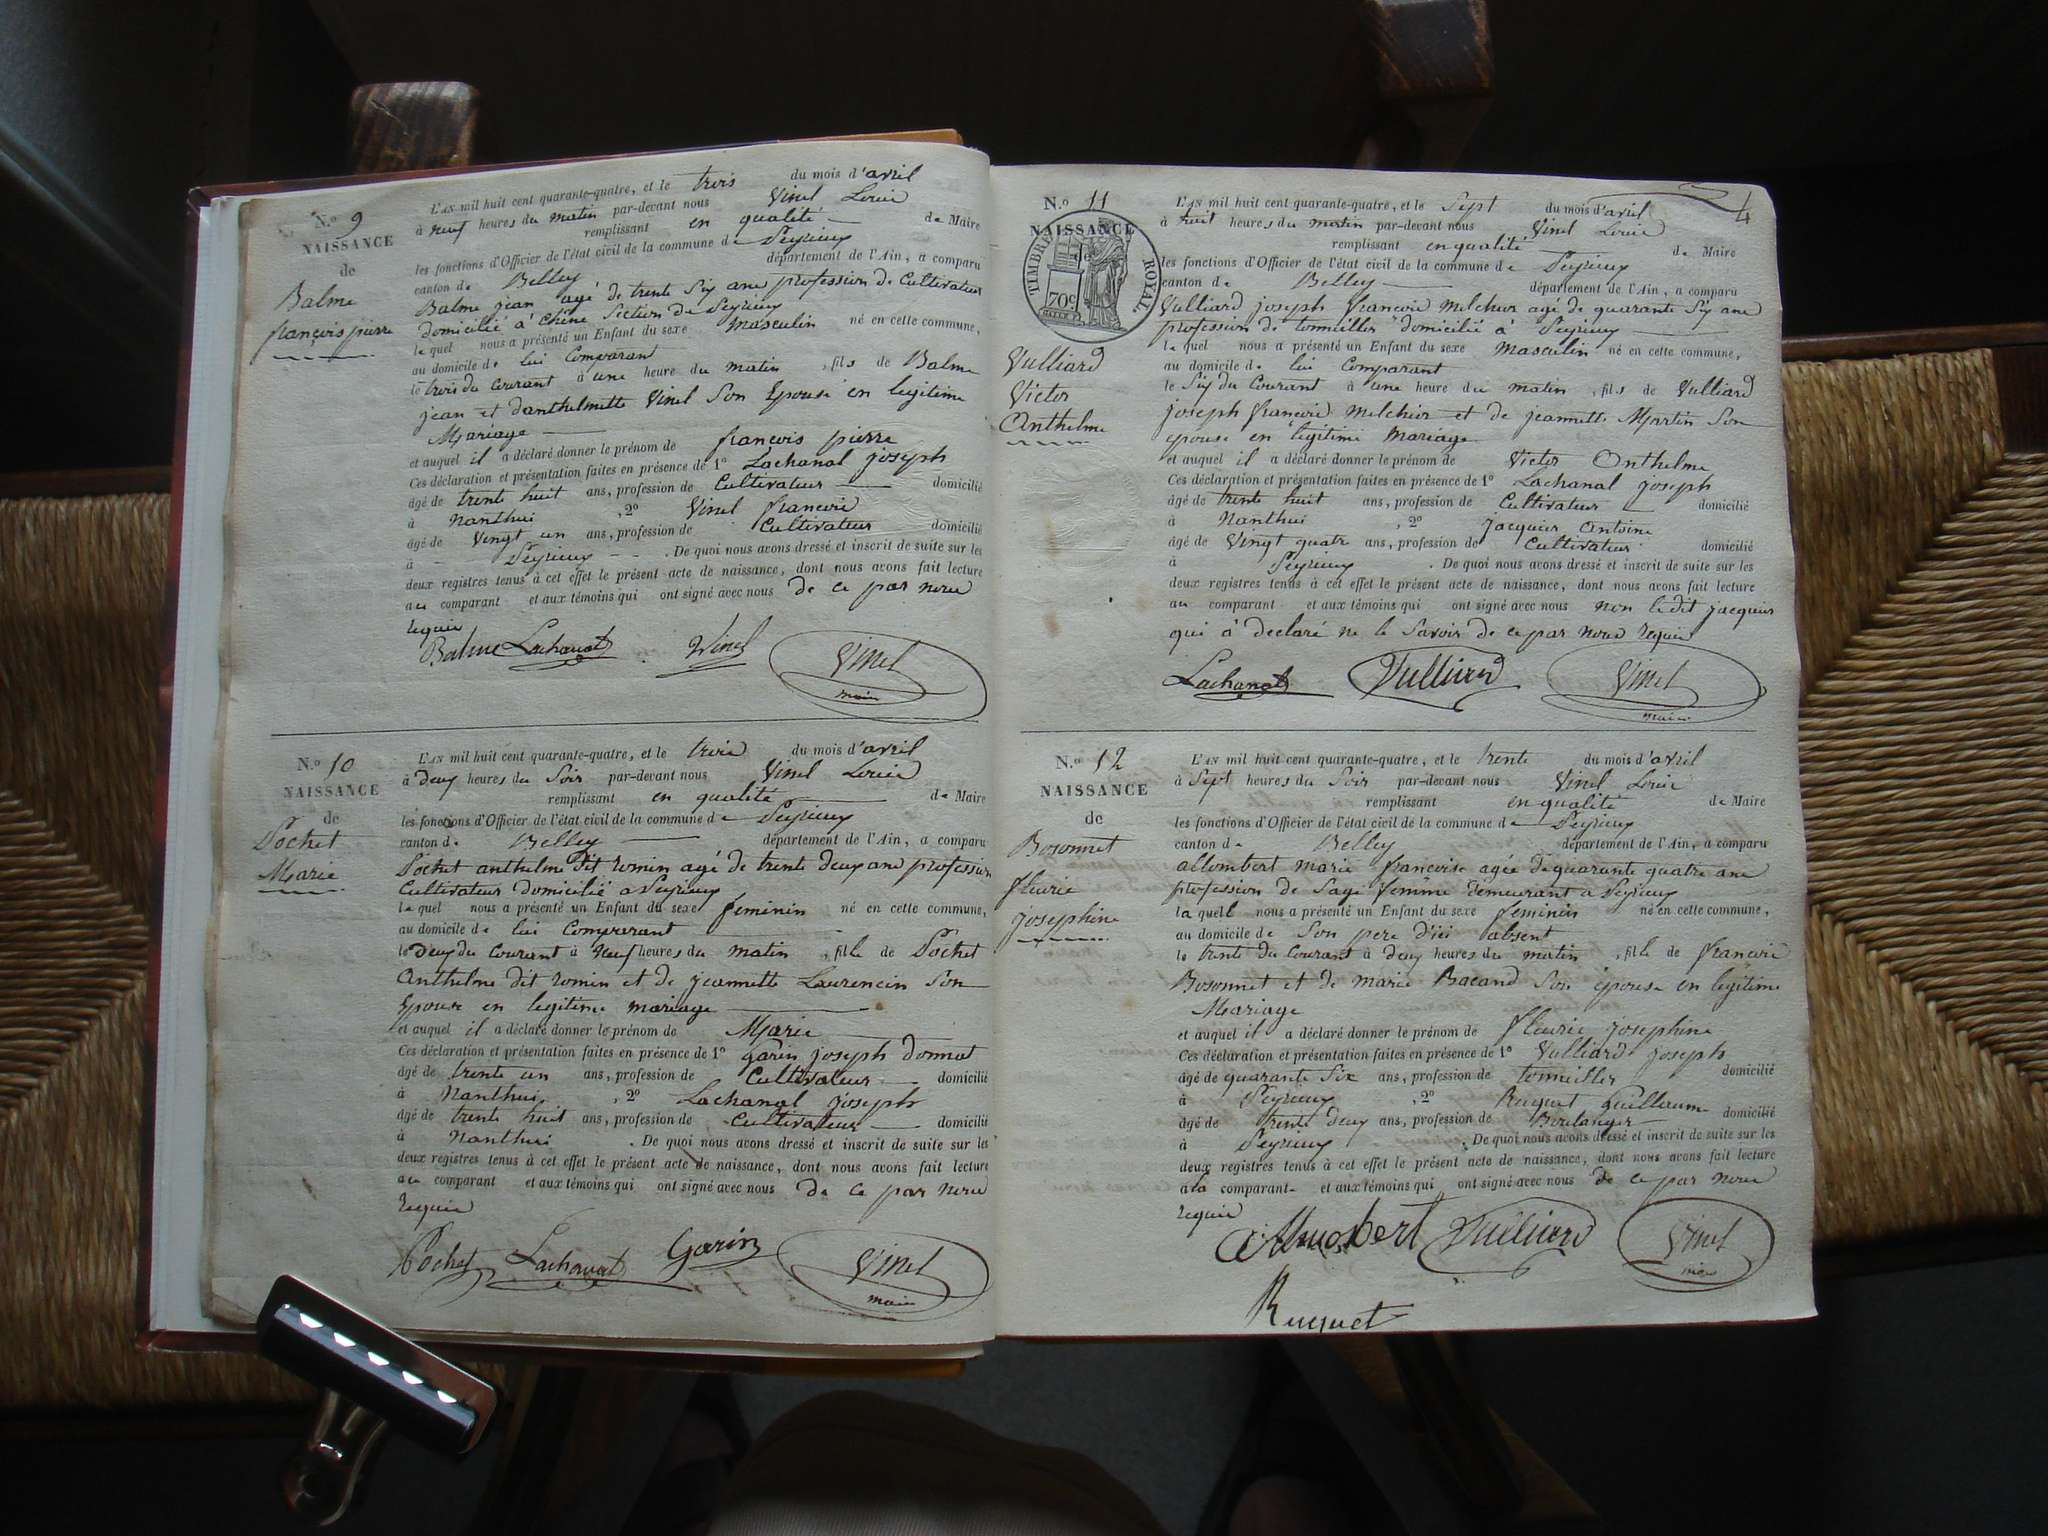 N.o 9
NAISSANCE
de
Balme
françois pierre
L'AN mil huit cent quarante-quatre, et le trois du mois d'avril
à neuf heures du matin par-devant nous Vinel Louis
remplissant en qualité de Maire
les fonctions d'Officier de l'état civil de la commune de Peyrieux
canton de Belley département de l'Ain, a comparu
Balme jean agé de trente Six ans profession de Cultivateur
domicilié à Chêne Section de Peyrieux
lequel nous a présenté un Enfant du sexe Masculin né en cette commune,
au domicile de lui Comparant
le trois du Courant à une heure du matin, fils de Balme
jean et danthelmette Vinel Son Epouse en legitime
Mariage
et auquel il a déclaré donner le prénom de françois pierre
Ces déclaration et présentation faites en présence de 1º Lachanal joseph
âgé de trente huit ans, profession de Cultivateur domicilié
à Nanthui, 2º Vinel françois
âgé de Vingt un ans, profession de Cultivateur domicilié
à Peyrieux. De quoi nous avons dressé et inscrit de suite sur les
deux registres tenus à cet effet le présent acte de naissance, dont nous avons fait lecture
au comparant et aux témoins qui ont signé avec nous de ce par nous
requis
Balme Lachanal Vinel Vinel
maire
N.o 10
NAISSANCE
de
Pochet
Marie
L'AN mil huit cent quarante-quatre, et le trois du mois d'avril
à deux heures du Soir par-devant nous Vinel Louis
remplissant en qualité de Maire
les fonctions d'Officier de l'état civil de la commune de Peyrieux
canton de Belley département de l'Ain, a comparu
Pochet anthelme dit romin agé de trente deux ans profession
Cultivateur domicilié a Peyrieux
lequel nous a présenté un Enfant du sexe feminin né en cette commune,
au domicile de lui Comparant
le deux du Courant à neuf heures du matin, fille de Pochet
Anthelme dit romin et de jeannette Laurencin Son
Epouse en legitime mariage
et auquel il a déclaré donner le prénom de Marie
Ces déclaration et présentation faites en présence de 1º Garin joseph Donnat
âgé de trente un ans, profession de Cultivateur domicilié
à Nanthui, 2º Lachanal joseph
âgé de trente huit ans, profession de Cultivateur domicilié
à Nanthui. De quoi nous avons dressé et inscrit de suite sur les
deux registres tenus à cet effet le présent acte de naissance, dont nous avons fait lecture
au comparant et aux témoins qui ont signé avec nous de ce par nous
requis
Pochet Lachanal Garin Vinel
maire
4
N.o 11
NAISSANCE
de
TIMBRE ROYAL
70c
Vulliard
Victor
Anthelme
L'AN mil huit cent quarante-quatre, et le Sept du mois d'avril
à huit heures du matin par-devant nous Vinel Louis
remplissant en qualité de Maire
les fonctions d'Officier de l'état civil de la commune de Peyrieux
canton de Belley département de l'Ain, a comparu
Vulliard joseph françois melchior agé de quarante Six ans
profession de tonneillier domicilié à Peyrieux
lequel nous a présenté un Enfant du sexe masculin né en cette commune,
au domicile de lui Comparant
le Six du Courant à une heure du matin, fils de Vulliard
joseph françois melchior et de jeannette Martin Son
epouse en legitime Mariage
et auquel il a déclaré donner le prénom de Victor Anthelme
Ces déclaration et présentation faites en présence de 1º Lachanal joseph
âgé de trente huit ans, profession de Cultivateur domicilié
à Nanthui, 2º jacquier Antoine
âgé de Vingt quatre ans, profession de Cultivateur domicilié
à Peyrieux. De quoi nous avons dressé et inscrit de suite sur les
deux registres tenus à cet effet le présent acte de naissance, dont nous avons fait lecture
au comparant et aux témoins qui ont signé avec nous non ledit jacquier
qui à declaré ne le Savoir de ce par nous requis
Lachanal Vulliard Vinel
maire
N.o 12
NAISSANCE
de
Bosonnet
fleurie
josephine
L'AN mil huit cent quarante-quatre, et le trente du mois d'avril
à Sept heures du Soir par-devant nous Vinel Louis
remplissant en qualité de Maire
les fonctions d'Officier de l'état civil de la commune de Peyrieux
canton de Belley département de l'Ain, a comparu
allombert marie françoise agée de quarante quatre ans
profession de Sage femme demeurant a Peyrieux
laquell nous a présenté un Enfant du sexe feminin né en cette commune,
au domicile de Son pere d'ici absent
le trente du Courant à deux heures du matin, fille de françois
Bosonnet et de marie Bacand Son epouse en legitime
Mariage
et auquel il a déclaré donner le prénom de fleurie josephine
Ces déclaration et présentation faites en présence de 1º Vulliard joseph
âgé de quarante Six ans, profession de tonneillier domicilié
à Peyrieux, 2º Ruquet Guillaume
âgé de trente deux ans, profession de Boulanger domicilié
à Peyrieux. De quoi nous avons dressé et inscrit de suite sur les
deux registres tenus à cet effet le présent acte de naissance, dont nous avons fait lecture
a la comparante et aux témoins qui ont signé avec nous de ce par nous
requis
Allombert Vulliard Vinel
maire
Ruquet